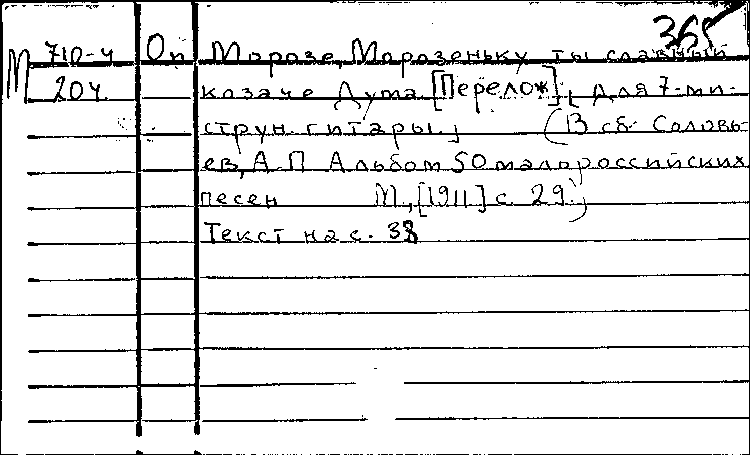 365
М 710-4 Оп Морозе, Морозеньку ты славный
204 козаче Дума [Перелож] для 7-ми-
струн. гитары. (В сб Соловь-
ев, А.П Альбом 50 малороссийских
песен М, [1911] с. 29.)
Текст на с. 38